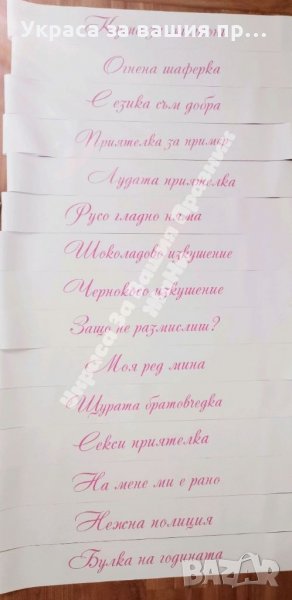 Украса за вашия пр...
Огнена шаферка
С езика съм добра
Приятелка за пример
Лудата приятелка
Русо гладно
Шоколадово изкушение
Чернокосо изкушение
Защо не размислиш?
Моя ред мина
Щурата братовчедка
Секси приятелка
На мене ми е рано
Нежна полиция
Булка на годината
Украса За Вашия Празник
bazar